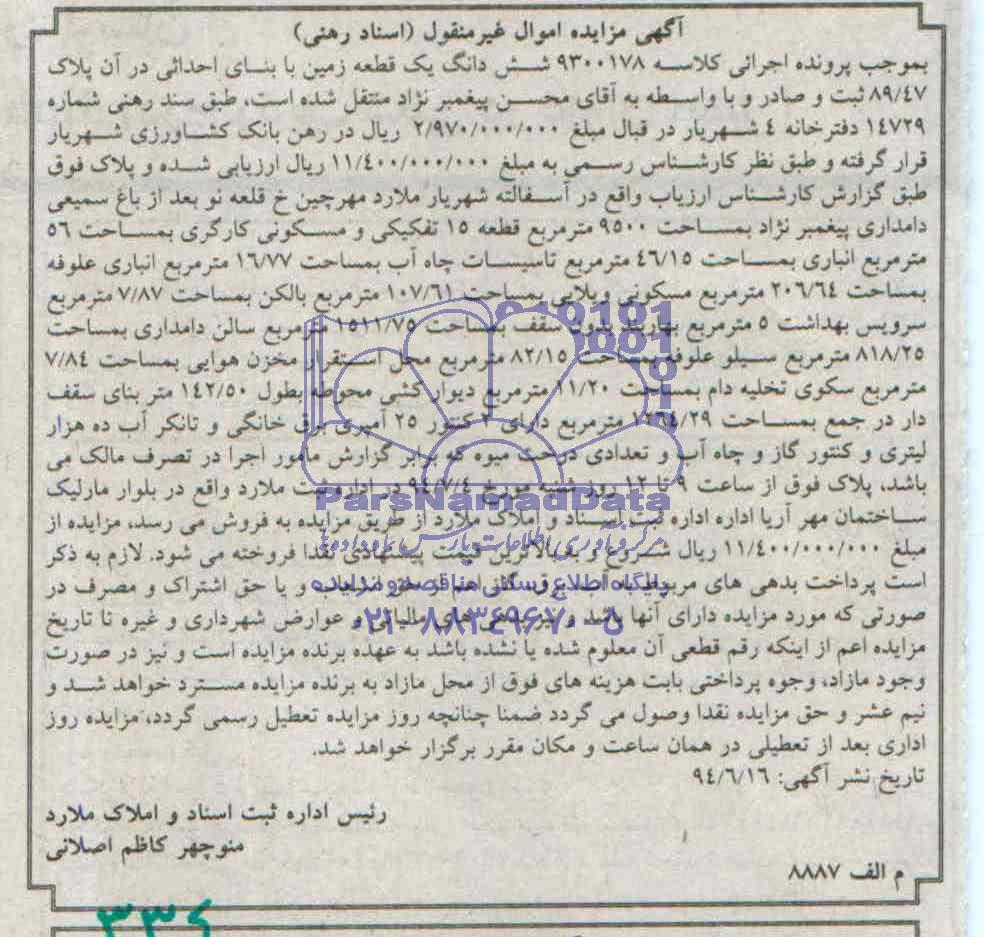 آگهی مزایده اموال غیرمنقول (اسناد رهنی)
بموجب پرونده اجرائی کلاسه ۹۳۰۰۱۷۸ شش دانگ یک قطعه زمین با بنای احداثی در آن پلاک
۸۹/۴۷ ثبت و صادر و با واسطه به آقای محسن پیغمبر نژاد منتقل شده است، طبق سند رهنی شماره
۱۴۷۲۹ دفترخانه ۴ شهریار در قبال مبلغ ۲/۹۷۰/۰۰۰/۰۰۰ ریال در رهن بانک کشاورزی شهریار
قرار گرفته و طبق نظر کارشناس رسمی به مبلغ ۱۱/۴۰۰/۰۰۰/۰۰۰ ریال ارزیابی شده و پلاک فوق
طبق گزارش کارشناس ارزیاب واقع در آسفالته شهریار ملارد مهرچین خ قلعه نو بعد از باغ سمیعی
دامداری پیغمبر نژاد بمساحت ۹۵۰۰ مترمربع قطعه ۱۵ تفکیکی و مسکونی کارگری بمساحت ۵۶
مترمربع انباری بمساحت ۴۶/۱۵ مترمربع تاسیسات چاه آب بمساحت ۱۶/۷۷ مترمربع انباری علوفه
بمساحت ۲۰۶/۶۴ مترمربع مسکونی ویلایی بمساحت ۱۰۷/۶۱ مترمربع بالکن بمساحت ۷/۸۷ مترمربع
سرویس بهداشت ۵ مترمربع بهاربند بدون سقف بمساحت ۱۵۱۱/۷۵ مترمربع سالن دامداری بمساحت
۸۱۸/۲۵ مترمربع سیلو علوفه بمساحت ۸۲/۱۵ مترمربع محل استقرار مخزن هوایی بمساحت ۷/۸۴
مترمربع سکوی تخلیه دام بمساحت ۱۱/۲۰ مترمربع دیوارکشی محوطه بطول ۱۴۲/۵۰ متر بنای سقف
دار در جمع بمساحت ۱۲۶۴/۲۹ مترمربع دارای ۲ کنتور ۲۵ آمپری برق خانگی و تانکر آب ده هزار
لیتری و کنتور گاز و چاه آب و تعدادی درخت میوه که برابر گزارش مامور اجرا در تصرف مالک می
باشد، پلاک فوق از ساعت ۹ تا ۱۲ روز شنبه مورخ ۹۴/۷/۴ در اداره ثبت ملارد واقع در بلوار مارلیک
ساختمان مهر آریا اداره اداره ثبت اسناد و املاک ملارد از طریق مزایده به فروش می رسد، مزایده از
مبلغ ۱۱/۴۰۰/۰۰۰/۰۰۰ ریال شروع و به بالاترین قیمت پیشنهادی نقدا فروخته می شود. لازم به ذکر
است پرداخت بدهی های مربوط به آب، برق، گاز اعم از حق انشعاب و یا حق اشتراک و مصرف در
صورتی که مورد مزایده دارای آنها باشد و نیز بدهی های مالیاتی و عوارض شهرداری و غیره تا تاریخ
مزایده اعم از اینکه رقم قطعی آن معلوم شده یا نشده باشد به عهده برنده مزایده است و نیز در صورت
وجود مازاد، وجوه پرداختی بابت هزینه های فوق از محل مازاد به برنده مزایده مسترد خواهد شد و
نیم عشر و حق مزایده نقدا وصول می گردد ضمنا چنانچه روز مزایده تعطیل رسمی گردد، مزایده روز
اداری بعد از تعطیلی در همان ساعت و مکان مقرر برگزار خواهد شد.
تاریخ نشر آگهی: ۹۴/۶/۱۶
رئیس اداره ثبت اسناد و املاک ملارد
منوچهر کاظم اصلانی
م الف ۸۸۸۷
ParsNamadData
مرکز فرآوری اطلاعات پارس نماد داده ها
پایگاه اطلاع رسانی مناقصه و مزایده
۰۲۱-۸۸۳۴۹۶۷۰-۵